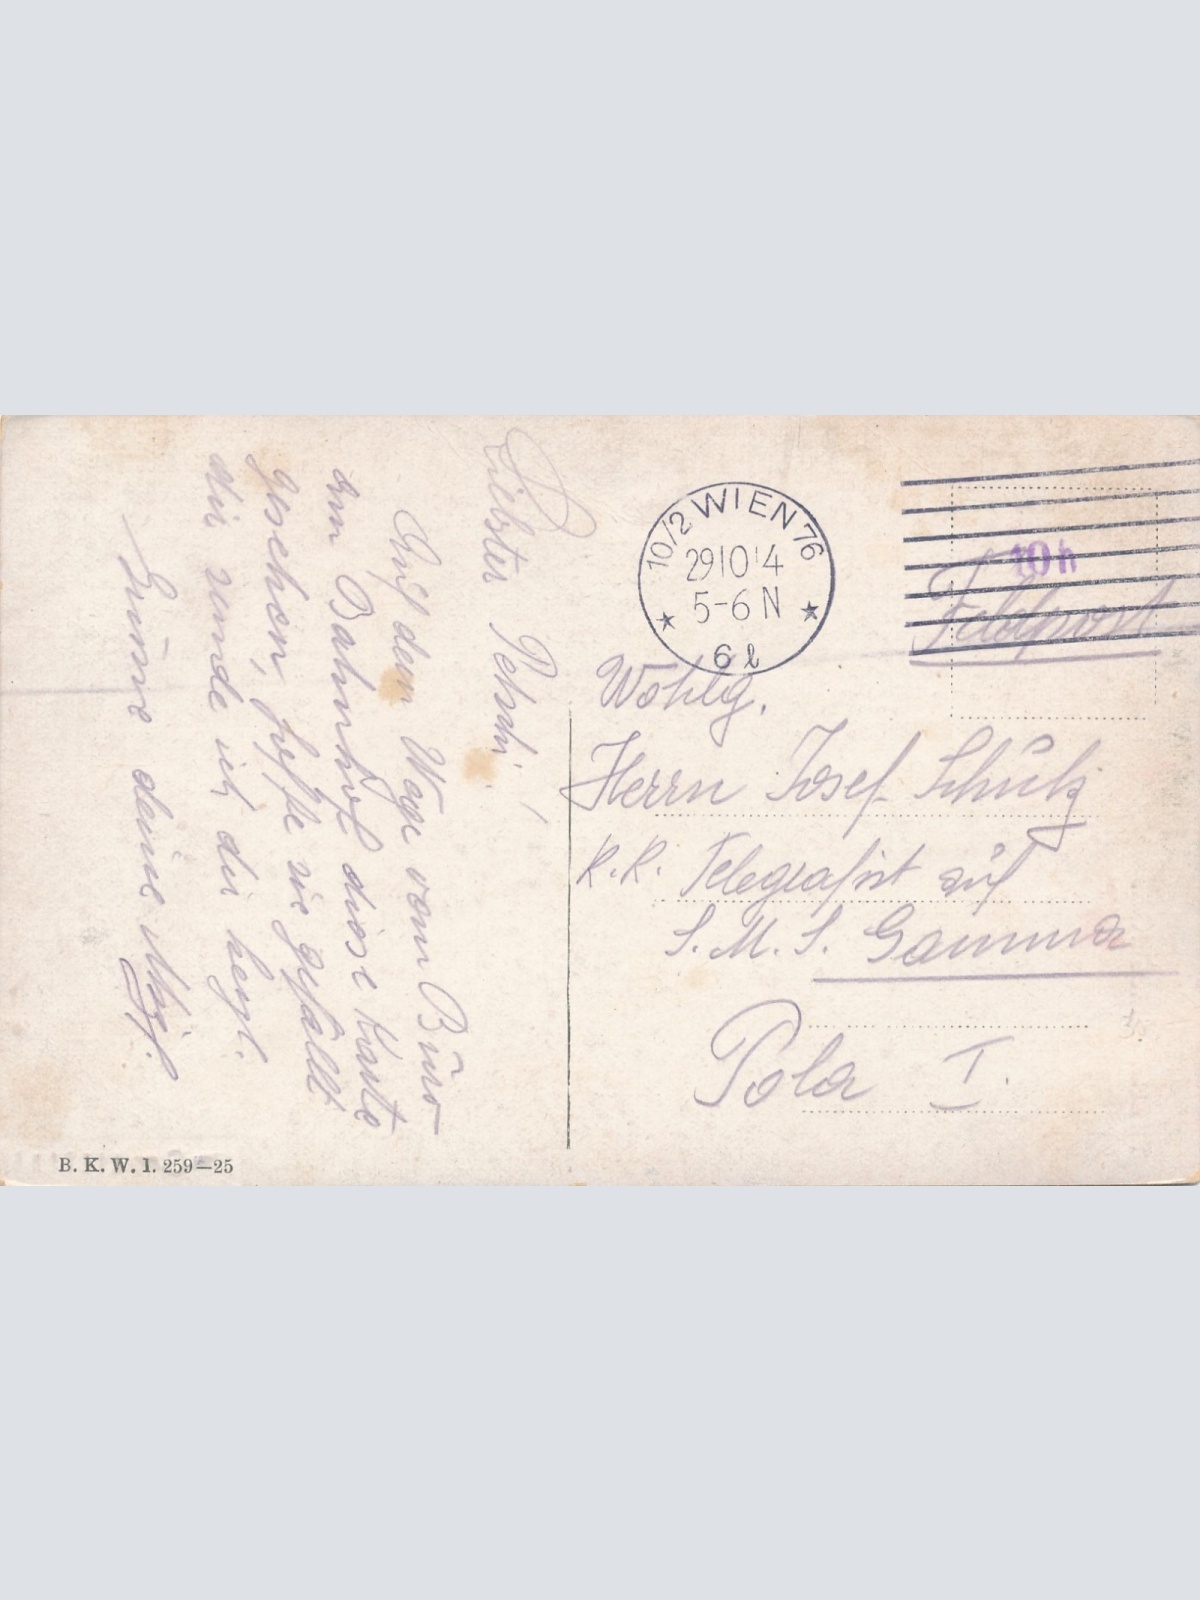 10/2 WIEN 76
29 10 14
5-6 N
6 l
10 h
Feldpost
Wohlg.
Herrn Josef Schütz
K. K. Telegrafist auf
S. M. S. Gamma
Pola I.
Liebster Pepschi!
Auf dem Wege vom Büro
am Bahnhof diese Karte
gesehen, hoffe sie gefällt
dir sende ich dir herzl.
Grüsse deine
B. K. W. I. 259—25